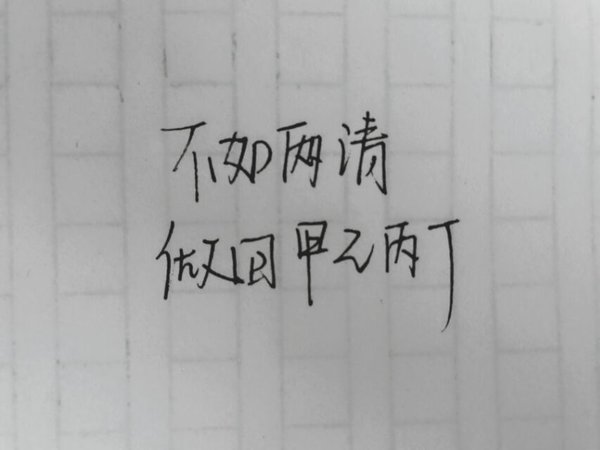 不如两清
做回甲乙丙丁